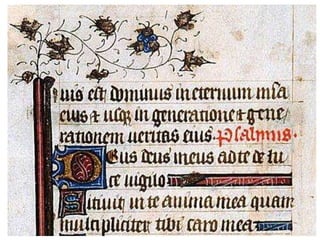 uis est dominus in eternum mīa
eius et usq; in generatione et gene
rationem ueritas eius. Psalmus.
Deus deus meus ad te de lu
ce uigilo
Sitiuit in te anima mea quam
multipliciter tibi caro mea